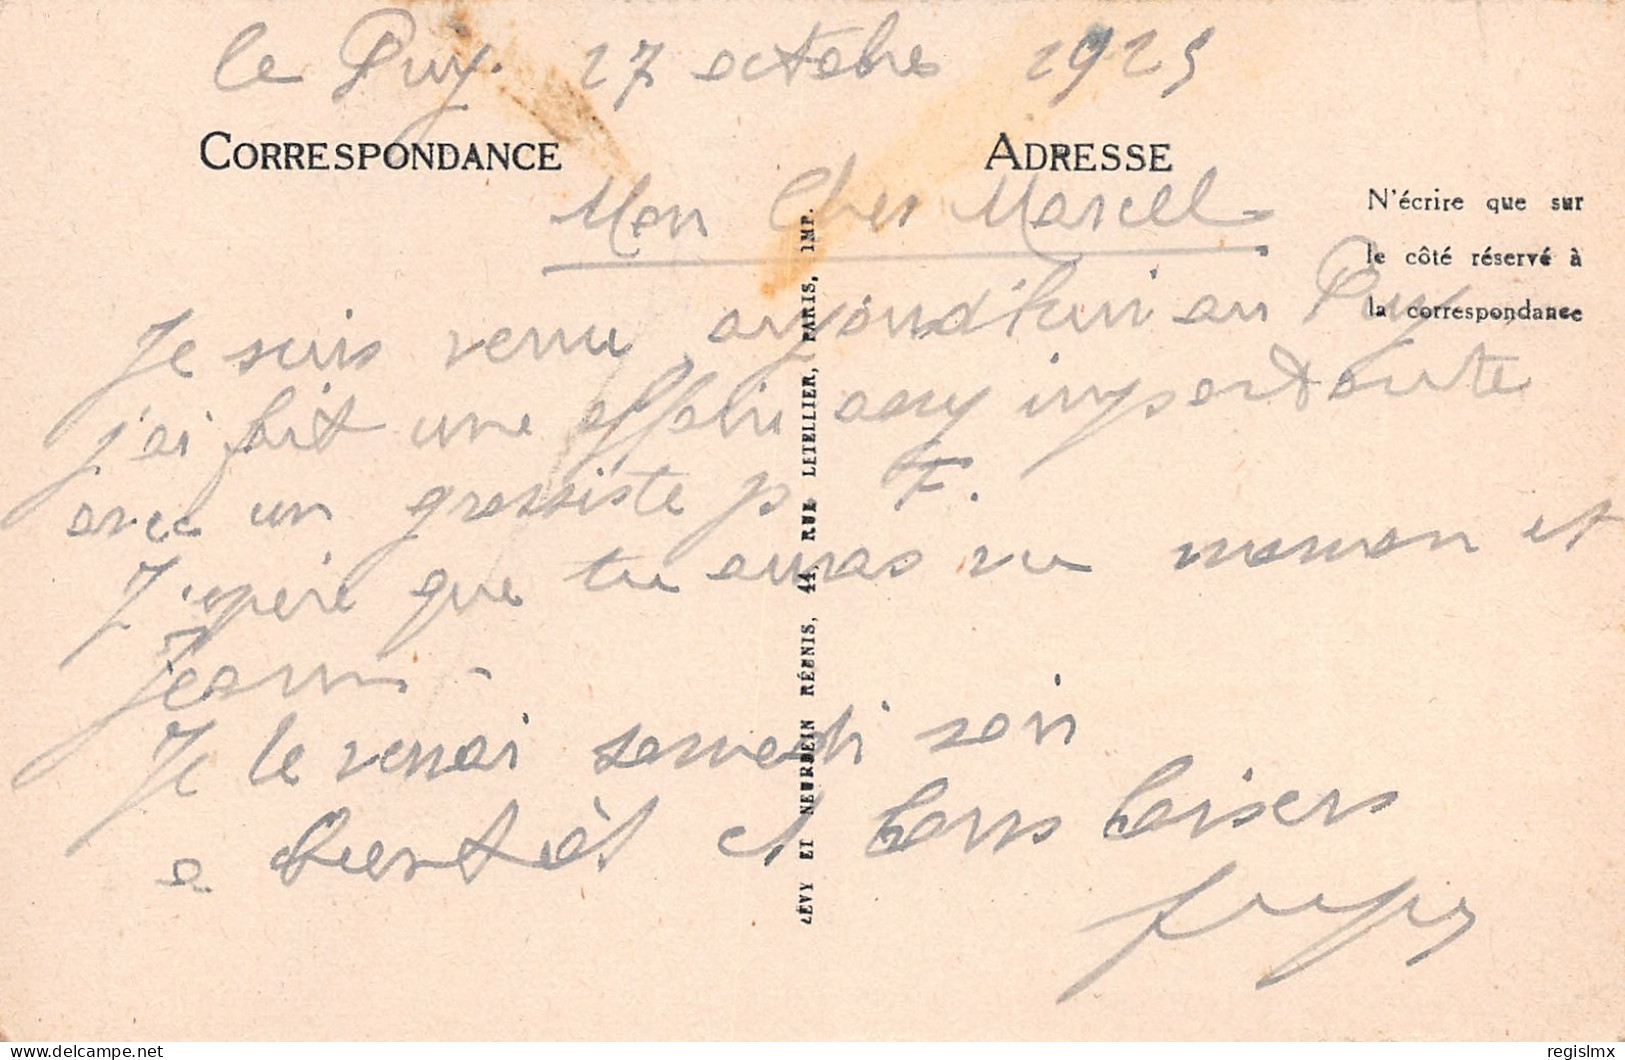 le Puy. 27 octobre 1925
CORRESPONDANCE
ADRESSE
Mon Cher Marcel
N'écrire que sur
le côté réservé à
la correspondance
Je suis venu aujourd'hui au Puy
j'ai fait une affaire assez importante
avec un grossiste p F.
J'espère que tu auras vu maman et
Jeanne -
Je le verrai samedi soir
a bientôt et bons baisers
LÉVY ET NEURDEIN RÉUNIS, 44, RUE LETELLIER, PARIS, IMP.
delcampe.net
regislmx